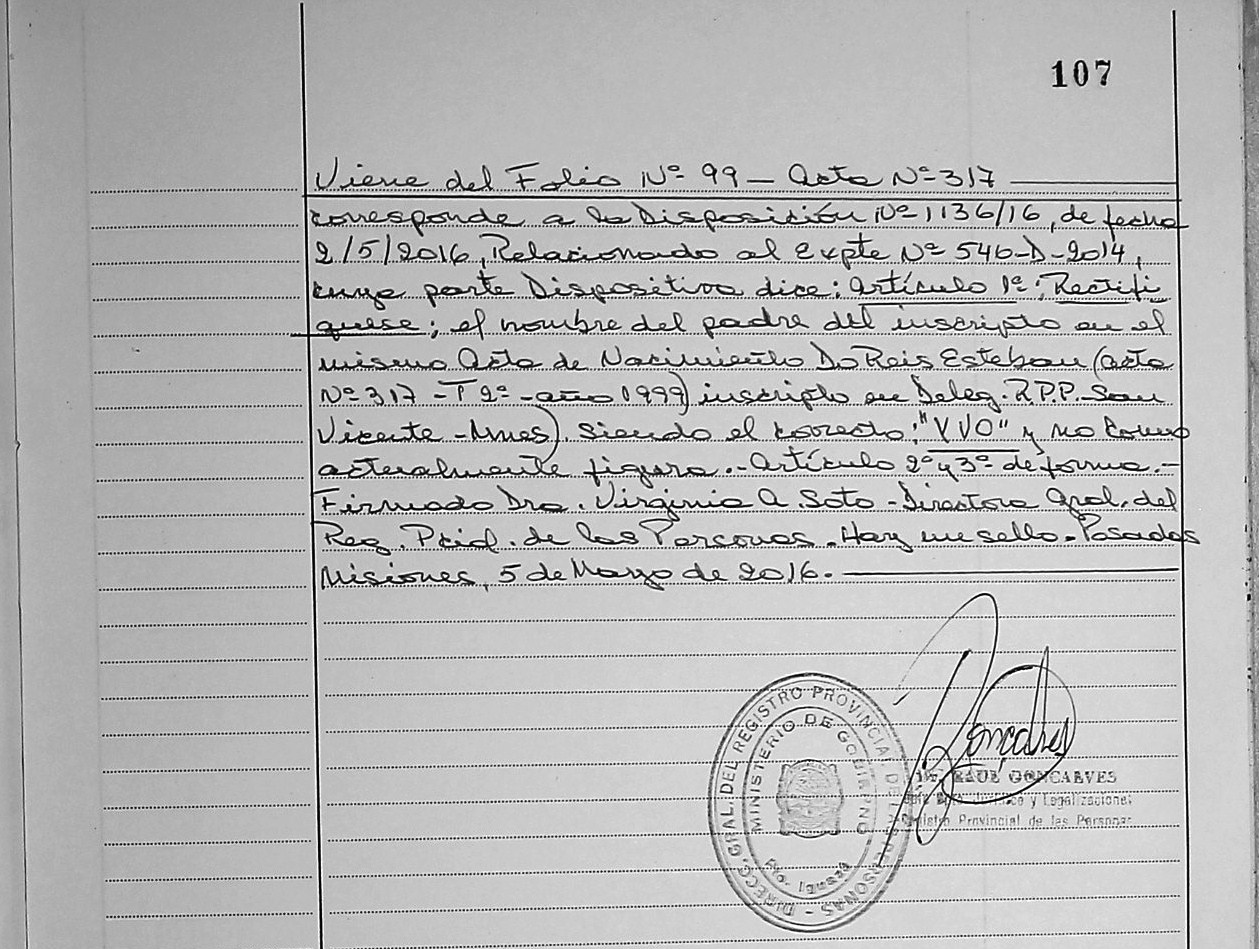 107
Viene del Folio Nº 99 — Acta Nº 317
corresponde a la Disposición Nº 1136/16, de fecha
2/5/2016, Relacionado al Expte Nº 546-D-2014,
cuya parte Dispositiva dice: Artículo 1º; Rectifi
quese; el nombre del padre del inscripto en el
mismo Acta de Nacimiento Do Reis Esteban (acta
Nº 317 - T 2º - año 1999) inscripto en Deleg. R.P.P. San
Vicente - Mnes). Siendo el correcto: "YVO" y no como
actualmente figura.- Artículo 2º y 3º de forma.-
Firmado Dra. Virginia A. Soto - Directora Gral. del
Reg. Pcial. de las Personas. Hay un sello. Posadas
Misiones, 5 de Mayo de 2016.
DIRECC. GRAL. DEL REGISTRO PROVINCIAL DE LAS PERSONAS -
MINISTERIO DE GOBIERNO
Pto. Iguazú
Goncalves
Dr. RAUL GONCALVES
Jefe Dpto. Jurídico y Legalizaciones
Registro Provincial de las Personas